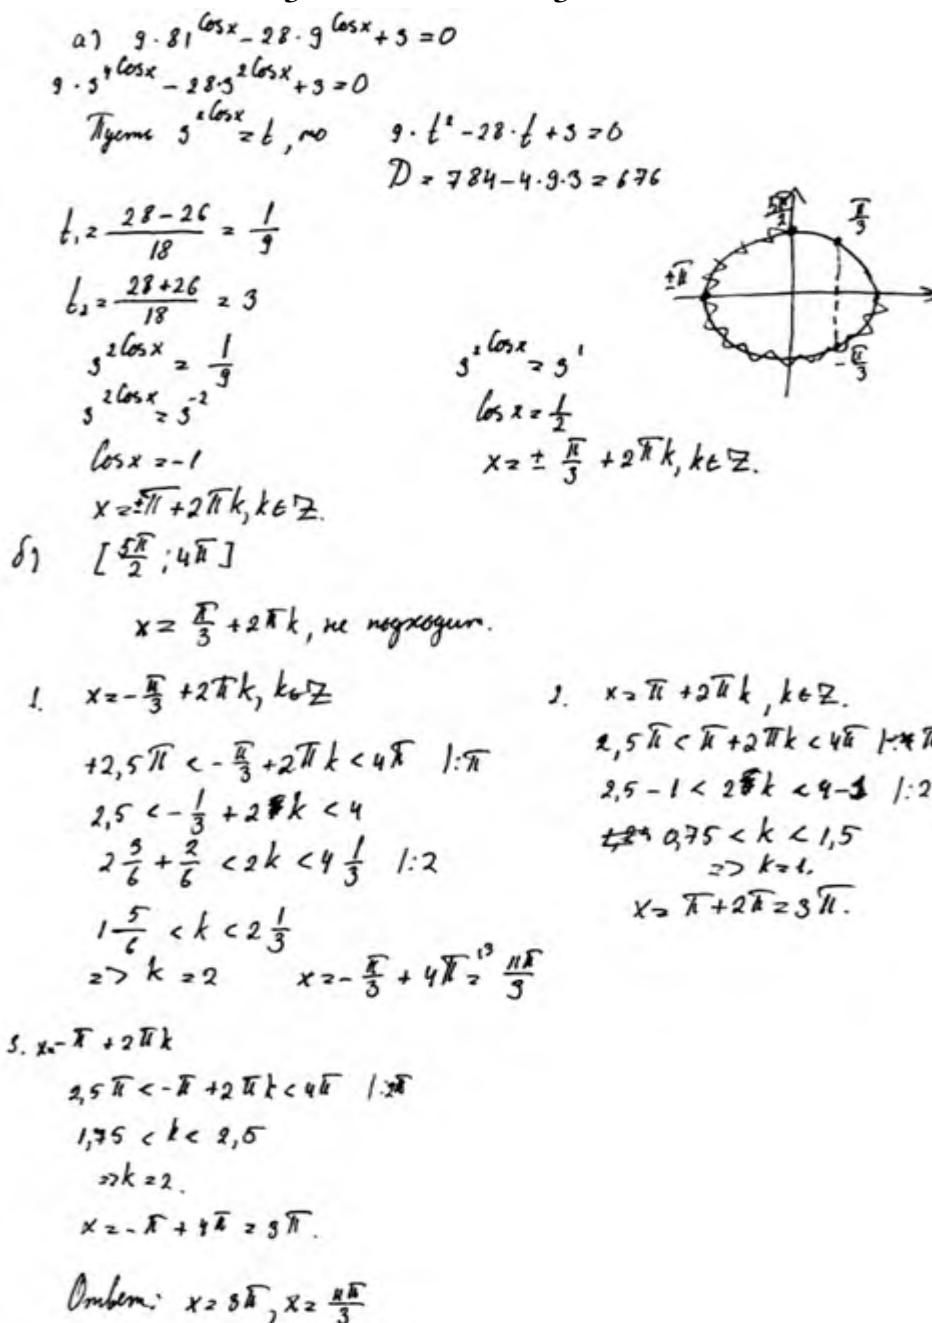 а) 9·81^{cosx} - 28·9^{cosx} + 3 = 0
9·3^{4cosx} - 28·3^{2cosx} + 3 = 0
Пусть 3^{2cosx} = t, то 9·t² - 28·t + 3 = 0
D = 784 - 4·9·3 = 676
t₁ = \frac{28-26}{18} = \frac{1}{9}
t₂ = \frac{28+26}{18} = 3
\frac{5π}{2} \frac{π}{3}
±π
-\frac{π}{3}
3^{2cosx} = \frac{1}{9}
3^{2cosx} = 3^{-2}
cosx = -1
x = ±π + 2πk, k∈Z.
3^{2cosx} = 3^1
cosx = \frac{1}{2}
x = ± \frac{π}{3} + 2πk, k∈Z.
б) [\frac{5π}{2}; 4π]
x = \frac{π}{3} + 2πk, не подходит.
1. x = -\frac{π}{3} + 2πk, k∈Z
+2,5π < -\frac{π}{3} + 2πk < 4π |:π
2,5 < -\frac{1}{3} + 2k < 4
2\frac{3}{6} + \frac{2}{6} < 2k < 4\frac{1}{3} |:2
1\frac{5}{6} < k < 2\frac{1}{3}
=> k = 2 x = -\frac{π}{3} + 4π = \frac{11π}{3}
2. x = π + 2πk, k∈Z.
2,5π < π + 2πk < 4π |:π
2,5 - 1 < 2k < 4 - 1 |:2
0,75 < k < 1,5
=> k = 1.
x = π + 2π = 3π.
3. x = -π + 2πk
2,5π < -π + 2πk < 4π |:2π
1,75 < k < 2,5
=> k = 2.
x = -π + 4π = 3π.
Ответ: x = 3π, x = \frac{11π}{3}